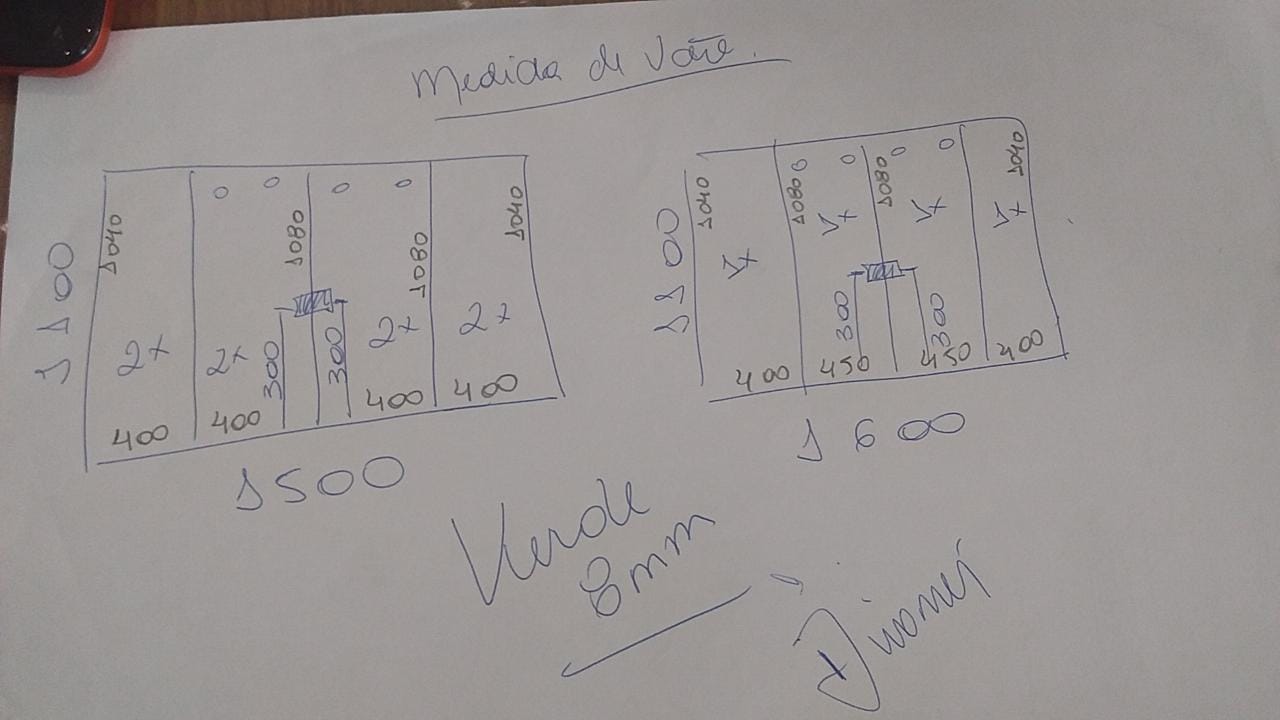 Medida de Vão.
1100
1040
1080
1080
1040
2x
2x
2x
2x
300
300
400
400
400
400
1500
1100
1040
1080
1080
1040
1x
1x
1x
1x
300
300
400
450
450
400
1600
Verde
8mm